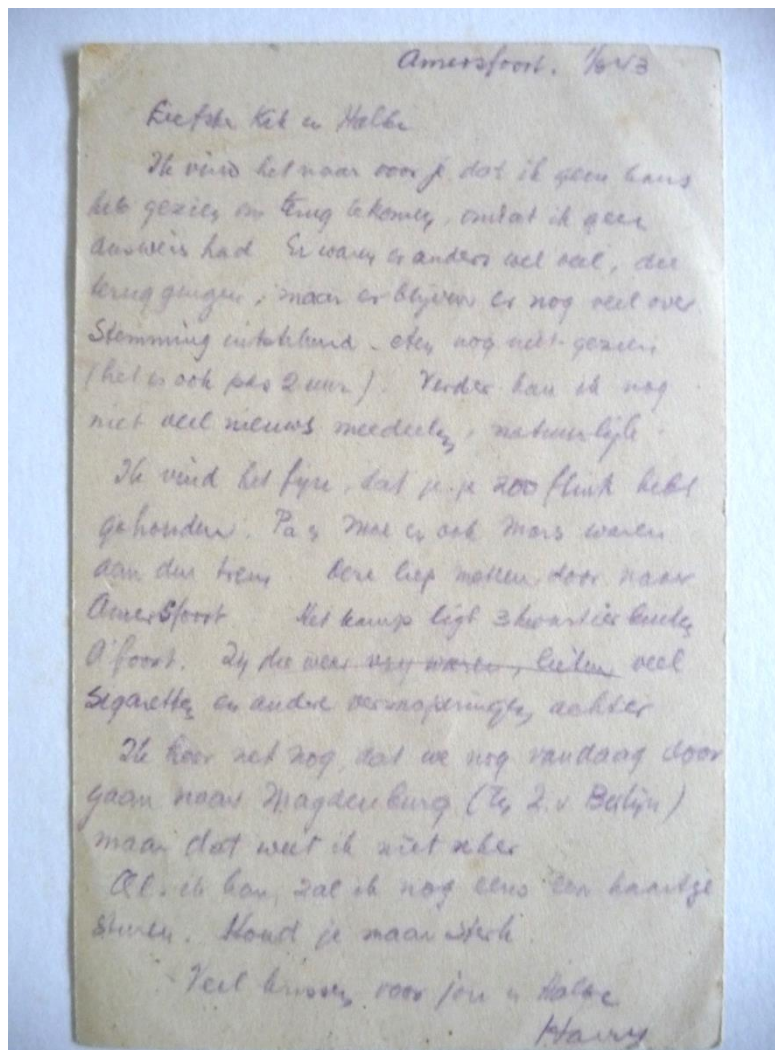 Amersfoort. 1/6 43
Liefste Keb en Halbe
Ik vind het naar voor je, dat ik geen kans
heb gezien om terug te komen, omdat ik geen
ausweis had Er waren er anders wel veel, die
teruggingen, maar er blijven er nog veel over.
Stemming uitstekend - eten nog niet gezien
(het is ook pas 2 uur). Verder kan ik nog
niet veel nieuws meedeelen, natuurlijk.
Ik vind het fijn, dat je je zoo flink hebt
gehouden. Pa en Moe en ook Mars waren
aan den trein. Deze liep meteen door naar
Amersfoort. Het kamp ligt 3 kwartier buiten
A'foort. Zij die weer vrij waren, lieten veel
Sigaretten en andere versnaperingen achter
Ik hoor net nog, dat we nog vandaag door
gaan naar Magdenburg (ten Z. v. Berlijn)
maar dat weet ik niet zeker
Als ik kan, zal ik nog eens een kaartje
sturen. Houd je maar sterk.
Veel kussen voor jou en Halbe
Harry